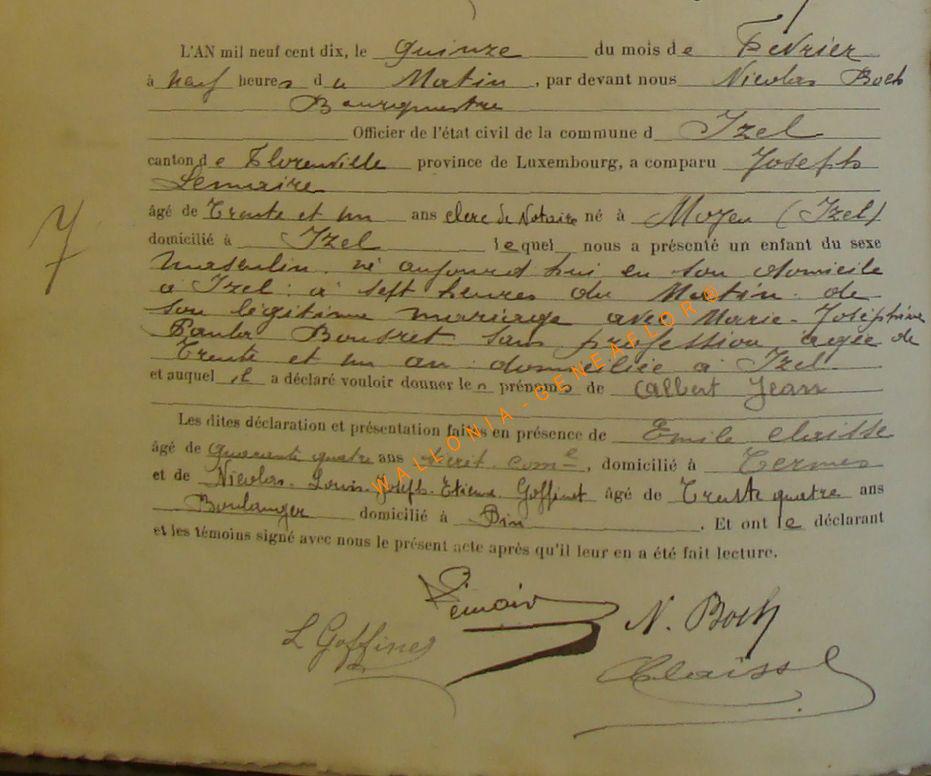 L'AN mil neuf cent dix, le quinze du mois de Fevrier
à neuf heures du Matin, par devant nous Nicolas Boch
Bourgmestre
Officier de l'état civil de la commune d Izel
canton de Florenville province de Luxembourg, a comparu Joseph
Lemaire
âgé de Trente et un ans clerc de Notaire né à Moyen (Izel)
domicilié à Izel lequel nous a présenté un enfant du sexe
masculin, né aujourd'hui en son domicile
à Izel à sept heures du Matin de
son légitime mariage avec Marie-Joséphine
Paula Bousret sans profession agée de
Trente et un an domiciliée à Izel
et auquel il a déclaré vouloir donner les prénoms de Albert Jean
Les dites déclaration et présentation faites en présence de Emile Claisse
âgé de Quarante quatre ans, domicilié à Termes
et de Nicolas-Louis-Joseph-Etienne Goffinet âgé de Trente quatre ans
Boulanger domicilié à Pin. Et ont le déclarant
et les témoins signé avec nous le présent acte après qu'il leur en a été fait lecture.
7
Lemaire
L Goffinet
N. Boch
Claisse
WALLONIA-GENEAFLOR©